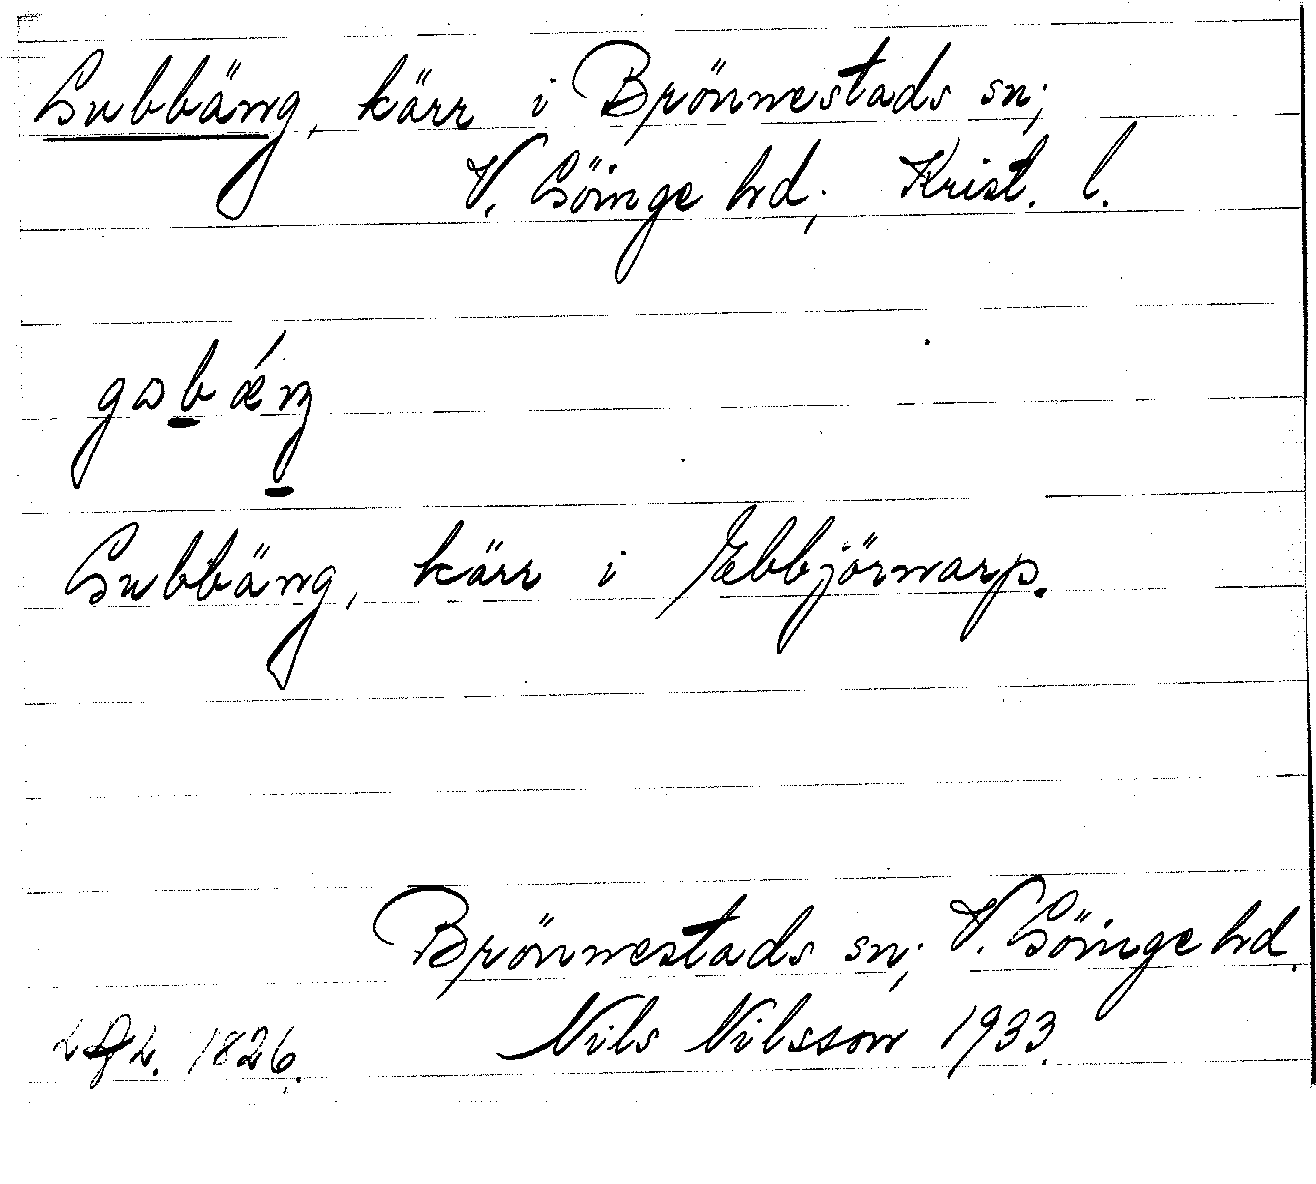 Gubbäng, kärr i Brönnestads sn;
V. Göinge hd; Krist. l.
gɷb̠ǽŋ̠
Gubbäng, kärr i Ebbjörnarp.
Brönnestads sn; V. Göinge hd.
LAL. 1826. Nils Nilsson 1933.